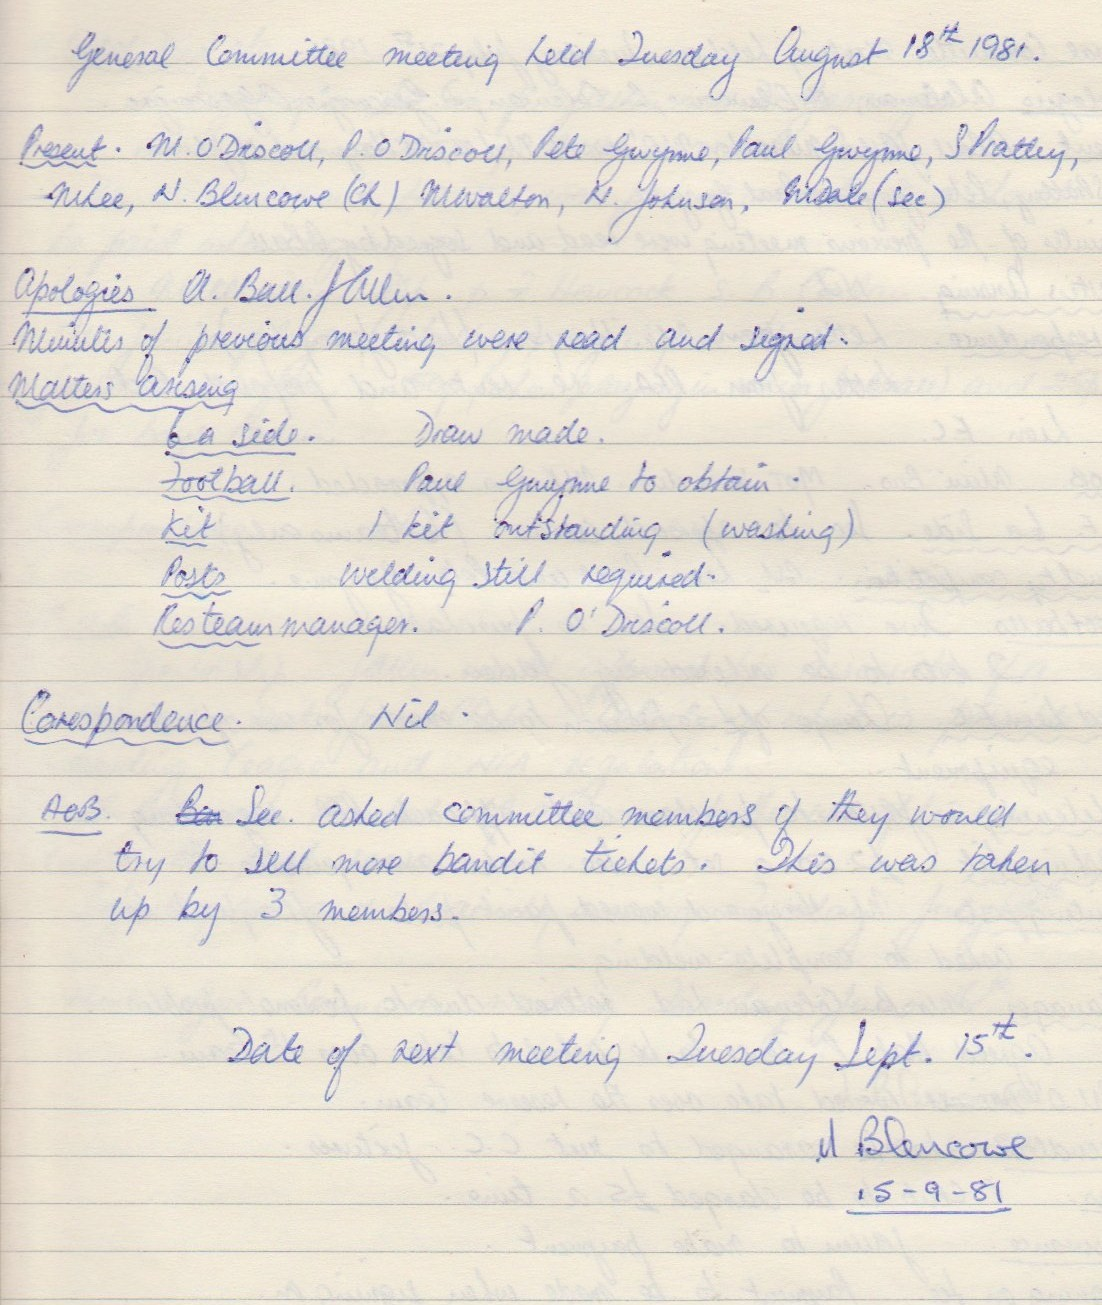 General Committee meeting held Tuesday August 18th 1981.
Present. M. O'Driscoll, P. O'Driscoll, Pete Gwynne, Paul Gwynne, S Prattey,
M Lee, N. Blencowe (Ch) M Walton, N. Johnson, M Dale (Sec)
Apologies A. Ball. J Allen.
Minutes of previous meeting were read and signed.
Matters arising
6 a side. Draw made.
Football. Paul Gwynne to obtain.
Kit 1 kit outstanding (washing)
Posts Welding still required.
Res team manager. P. O'Driscoll.
Correspondence. Nil.
AOB. Sec. asked committee members if they would
try to sell more bandit tickets. This was taken
up by 3 members.
Date of next meeting Tuesday Sept. 15th.
N Blencowe
15-9-81